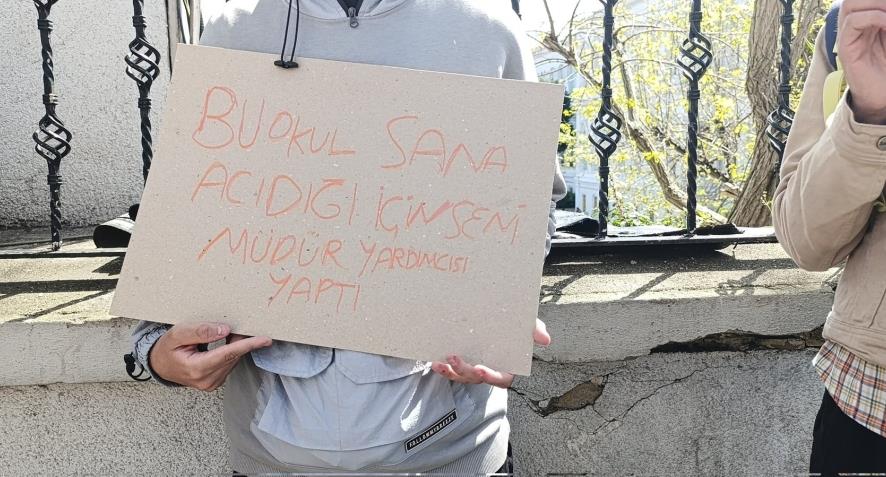 BU OKUL SANA
ACIDIĞI İÇİN SENİ
MÜDÜR YARDIMCISI
YAPTI